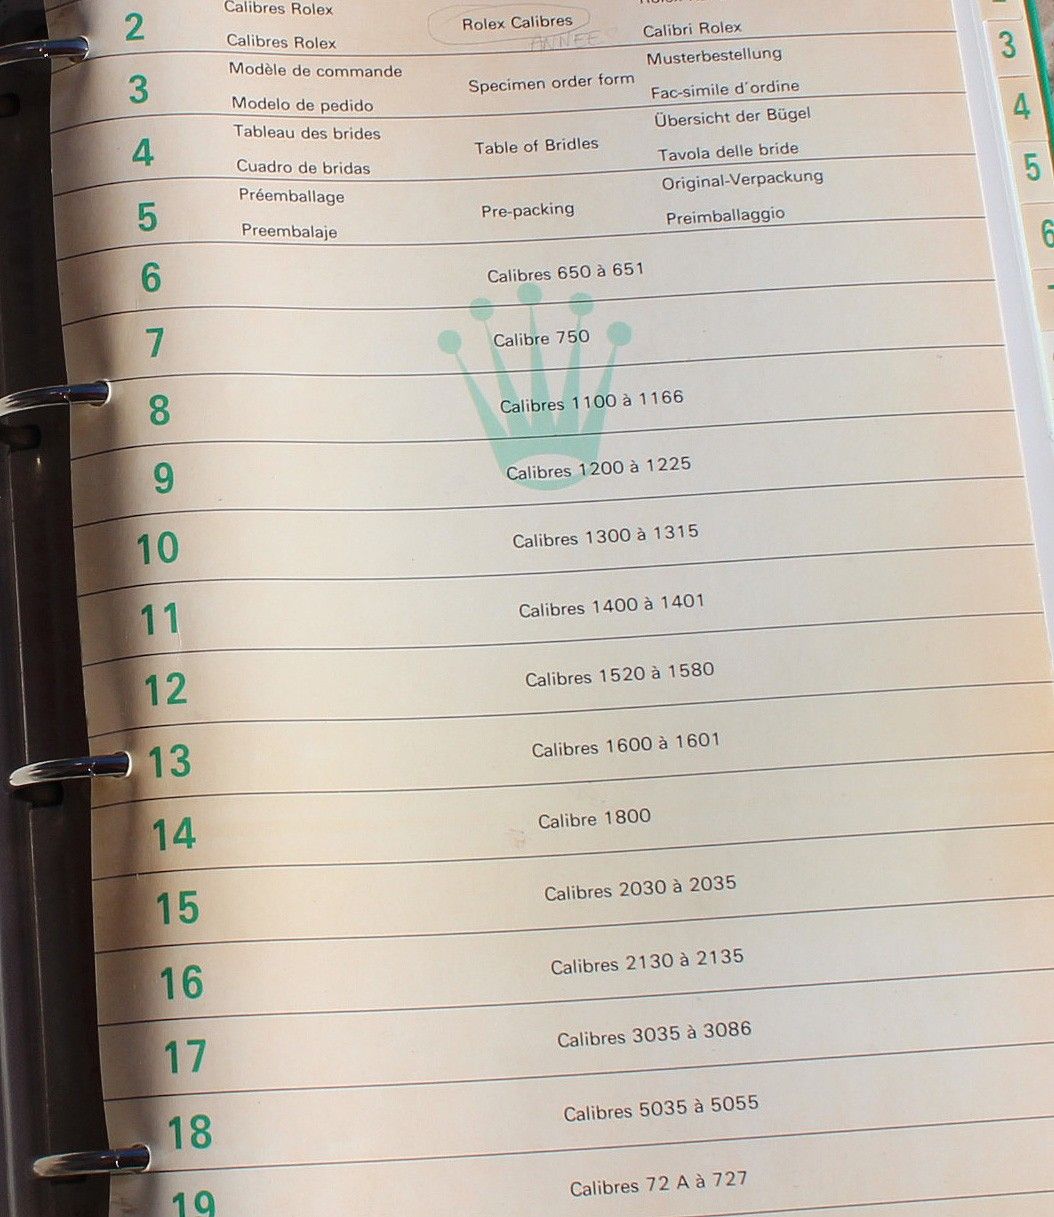 2
Calibres Rolex
Calibres Rolex
Rolex Calibres
ANNEE
Calibri Rolex
3
Modèle de commande
Modelo de pedido
Specimen order form
Musterbestellung
Fac-simile d'ordine
4
Tableau des brides
Cuadro de bridas
Table of Bridles
Übersicht der Bügel
Tavola delle bride
5
Préemballage
Preembalaje
Pre-packing
Original-Verpackung
Preimballaggio
6 Calibres 650 à 651
7 Calibre 750
8 Calibres 1100 à 1166
9 Calibres 1200 à 1225
10 Calibres 1300 à 1315
11 Calibres 1400 à 1401
12 Calibres 1520 à 1580
13 Calibres 1600 à 1601
14 Calibre 1800
15 Calibres 2030 à 2035
16 Calibres 2130 à 2135
17 Calibres 3035 à 3086
18 Calibres 5035 à 5055
19 Calibres 72 A à 727
3
4
5
6